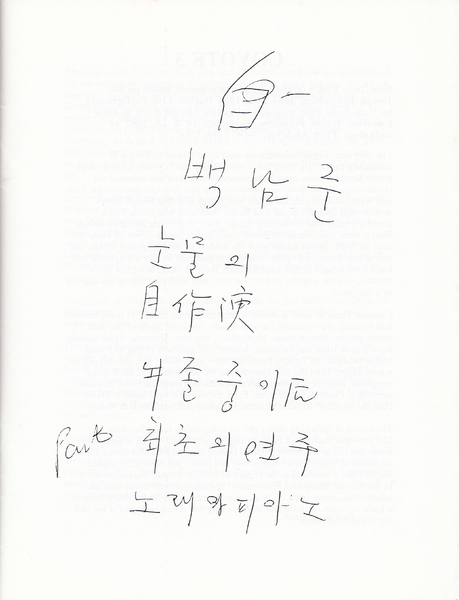 自一
백남준
눈물의
自作演
뇌졸중이后
최초의 연주
노래와 피아노